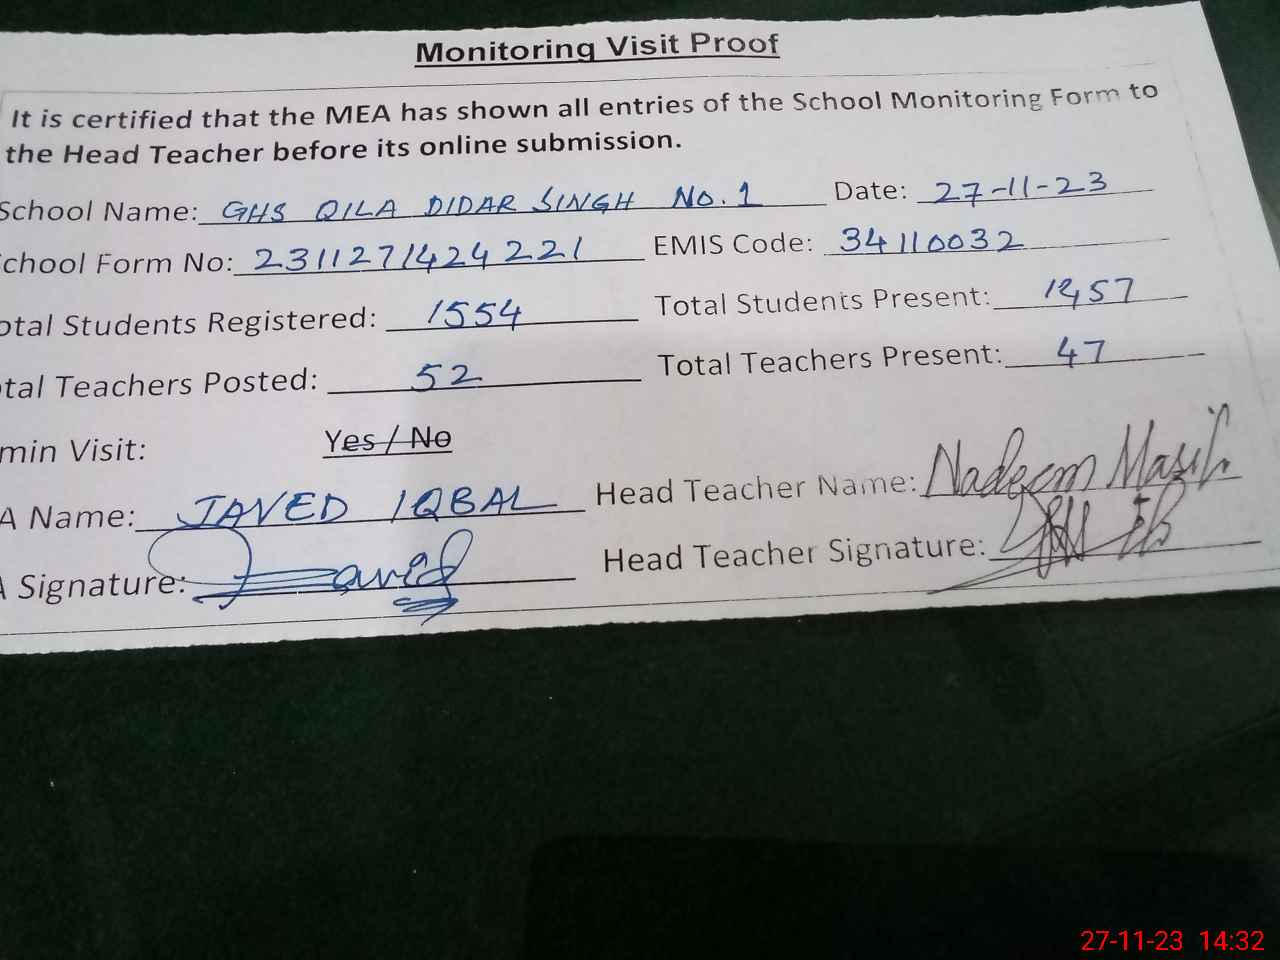 Monitoring Visit Proof
It is certified that the MEA has shown all entries of the School Monitoring Form to
the Head Teacher before its online submission.
School Name: GHS QILA DIDAR SINGH No. 1 Date: 27-11-23
chool Form No: 231127142422 1 EMIS Code: 34110032
otal Students Registered: 1554 Total Students Present:
tal Teachers Posted: 52 Total Teachers Present: 47
min Visit: Yes / No
A Name: JAVED IQBAL Head Teacher Name: Nadeem Masih
A Signature: Javed Head Teacher Signature:
27-11-23 14:32